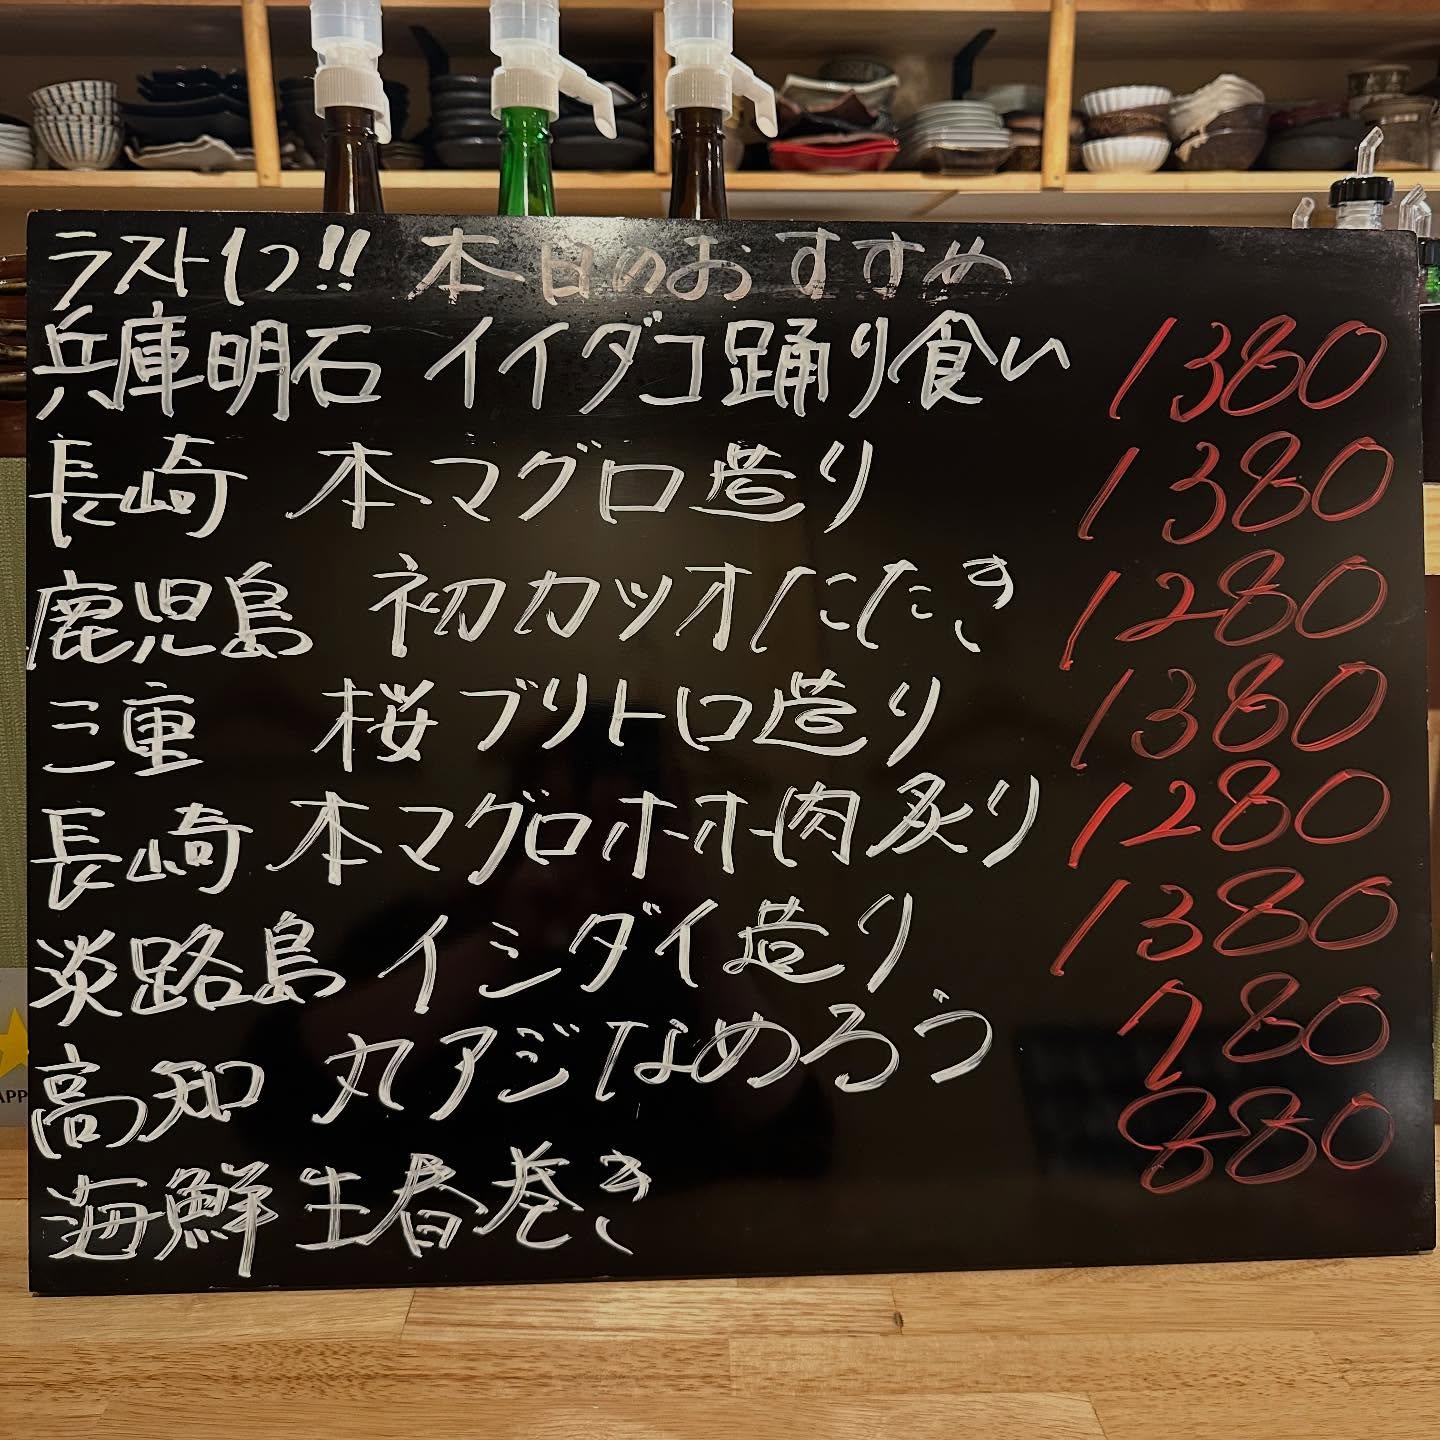 ラスト1つ!! 本日のおすすめ
兵庫明石 イイダコ踊り食い 1380
長崎 本マグロ造り 1380
鹿児島 初カツオたたき 1280
三重 桜ブリトロ造り 1380
長崎 本マグロホホ肉炙り 1280
淡路島 イシダイ造り 1380
高知 丸アジなめろう 780
海鮮生春巻き 880
APP